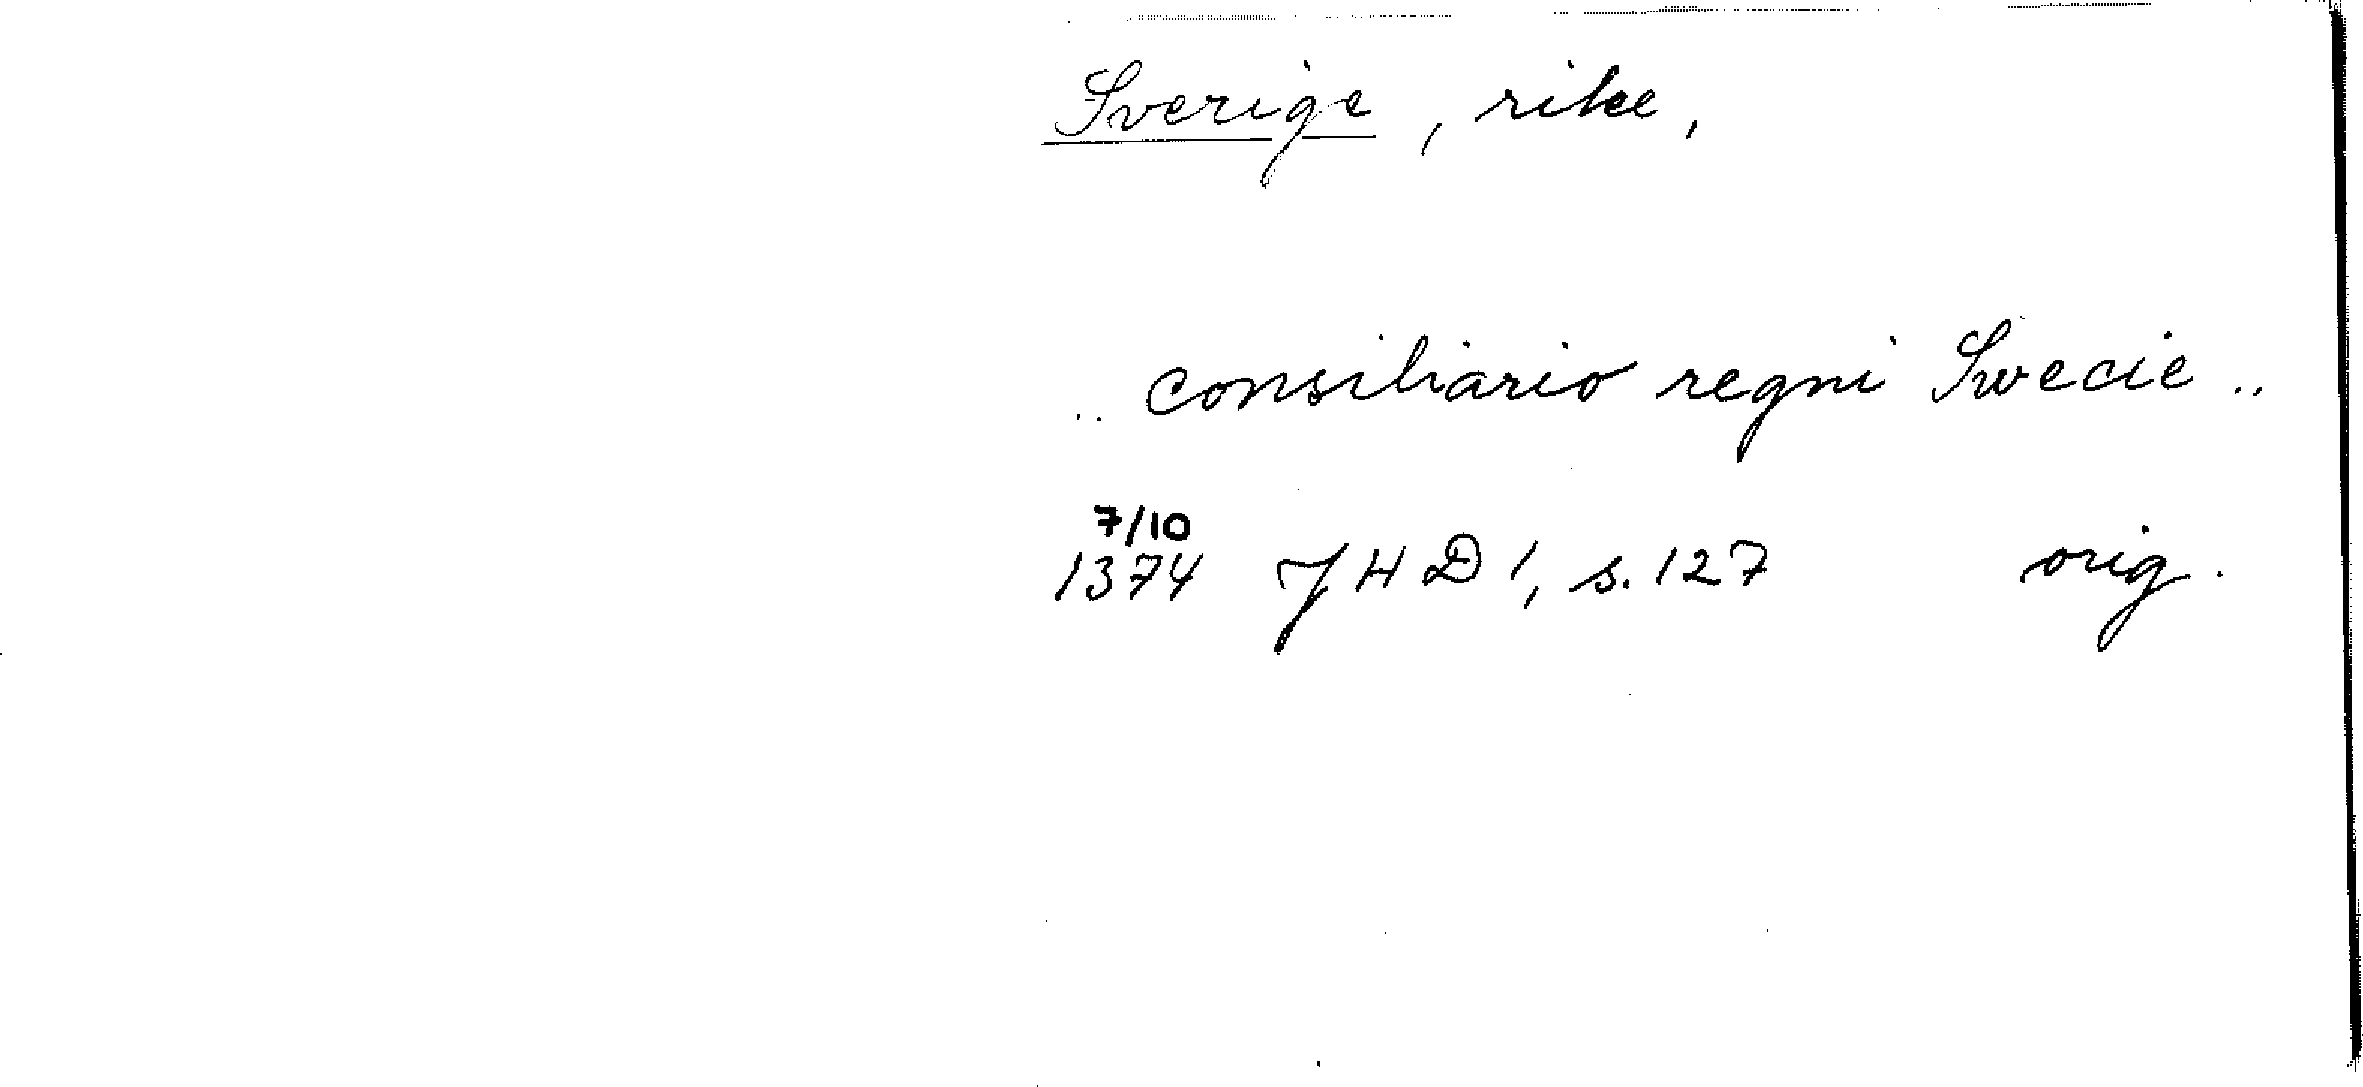 Sverige, rike,
.. consiliario regni Swecie ..
7/10
1374 JHD 1, s. 127 orig.